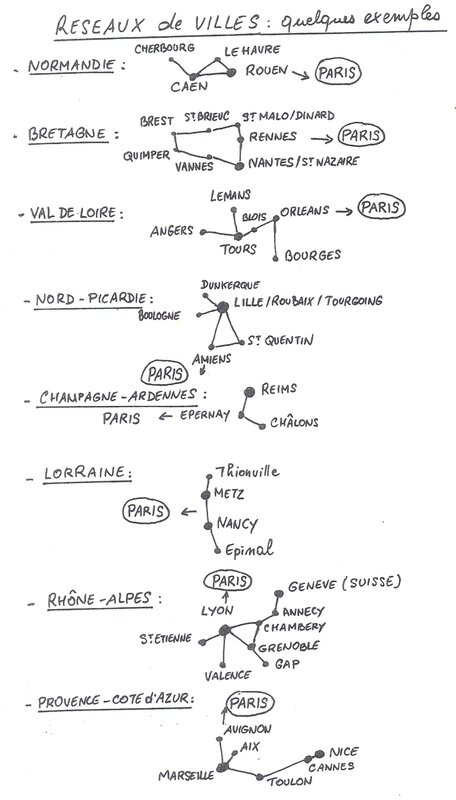 RESEAUX de VILLES : quelques exemples
- NORMANDIE :
CHERBOURG
LE HAVRE
CAEN
ROUEN → PARIS
- BRETAGNE :
BREST
ST BRIEUC
ST MALO/DINARD
RENNES → PARIS
QUIMPER
VANNES
NANTES/ST NAZAIRE
- VAL DE LOIRE :
LEMANS
ANGERS
TOURS
BLOIS
ORLEANS → PARIS
BOURGES
- NORD - PICARDIE :
DUNKERQUE
LILLE/ROUBAIX/TOURGOING
BOOLOGNE
ST QUENTIN
AMIENS
PARIS
- CHAMPAGNE-ARDENNES :
REIMS
PARIS ← EPERNAY
CHÂLONS
- LORRAINE :
Thionville
METZ
PARIS ←
NANCY
Epinal
- RHÔNE-ALPES :
PARIS
GENEVE (SUISSE)
LYON
ANNECY
CHAMBERY
ST ETIENNE
GRENOBLE
VALENCE
GAP
- PROVENCE-COTE d'AZUR :
PARIS
AVIGNON
AIX
MARSEILLE
TOULON
CANNES
NICE